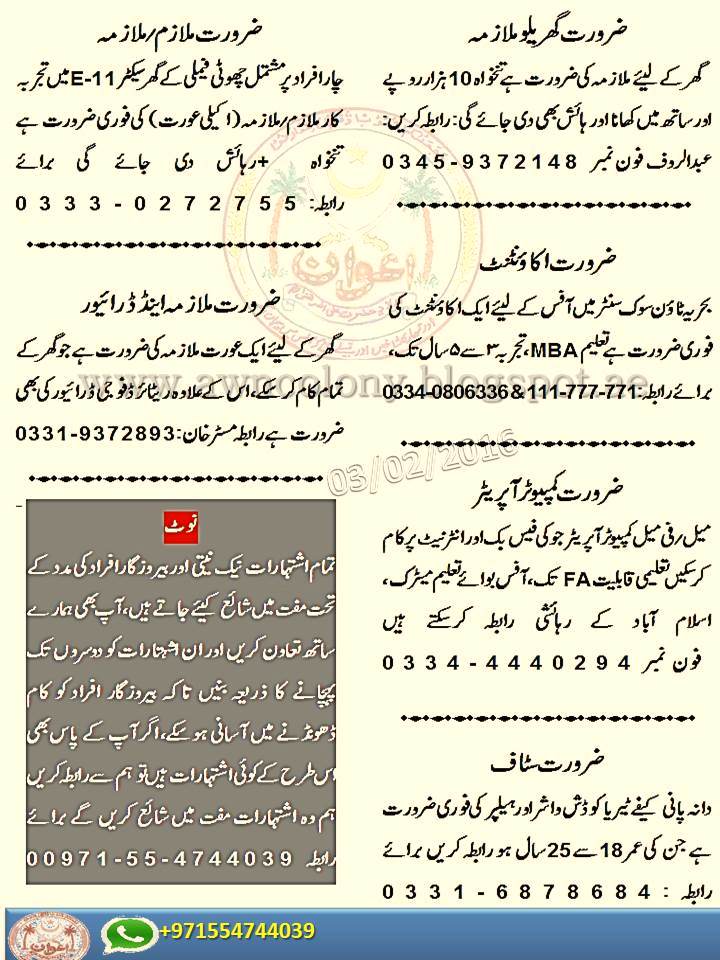 ضرورت گھریلو ملازمہ
گھر کے لیئے ملازمہ کی ضرورت ہے تنخواہ 10 ہزار روپے
اور ساتھ میں کھانا اور ہائش بھی دی جائے گی: رابطہ کریں:
عبدالروف فون نمبر 0345-9372148
ضرورت اکاؤنٹنٹ
بحریہ ٹاؤن سوک سنٹر میں آفس کے لیئے ایک اکاؤنٹنٹ کی
فوری ضرورت ہے تعلیم MBA، تجربہ ۳ سے ۵ سال تک،
برائے رابطہ: 111-777-771 & 0334-0806336
ضرورت کمپیوٹر آپریٹر
میل/فی میل کمپیوٹر آپریٹر جو کی فیس بک اور انٹرنیٹ پر کام
کرسکیں تعلیمی قابلیت FA تک، آفس بوائے تعلیم میٹرک،
اسلام آباد کے رہائشی رابطہ کرسکتے ہیں
فون نمبر 0334-4440294
ضرورت سٹاف
دانہ پانی کیفے ٹیریا کو ڈش واشر اور ہیلپر کی فوری ضرورت
ہے جن کی عمر 18 سے 25 سال ہو رابطہ کریں برائے
رابطہ : 0331-6878684
ضرورت ملازم/ملازمہ
چار افراد پر مشتمل چھوٹی فیملی کے گھر سیکٹر E-11 میں تجربہ
کار ملازم/ملازمہ (اکیلی عورت) کی فوری ضرورت ہے
تنخواہ +رہائش دی جائے گی برائے
رابطہ: 0333-0272755
ضرورت ملازمہ اینڈ ڈرائیور
گھر کے لیئے ایک عورت ملازمہ کی ضرورت ہے جو گھر کے
تمام کام کرسکے، اس کے علاوہ ریٹائرڈ فوجی ڈرائیور کی بھی
ضرورت ہے رابطہ مسٹر خان: 0331-9372893
www.awncolony.blogspot.ae
03/02/2016
نوٹ
تمام اشتہارات نیک نیتی اور بیروزگار افراد کی مدد کے
تحت مفت میں شائع کیئے جاتے ہیں، آپ بھی ہمارے
ساتھ تعاون کریں اور ان اشتہارات کو دوسروں تک
پہچانے کا ذریعہ بنیں تاکہ بیروزگار افراد کو کام
ڈھونڈنے میں آسانی ہوسکے، اگر آپ کے پاس بھی
اس طرح کے کوئی اشتہارات ہیں تو ہم سے رابطہ کریں
ہم وہ اشتہارات مفت میں شائع کریں گے برائے
رابطہ 00971-55-4744039
اعوان
+971554744039